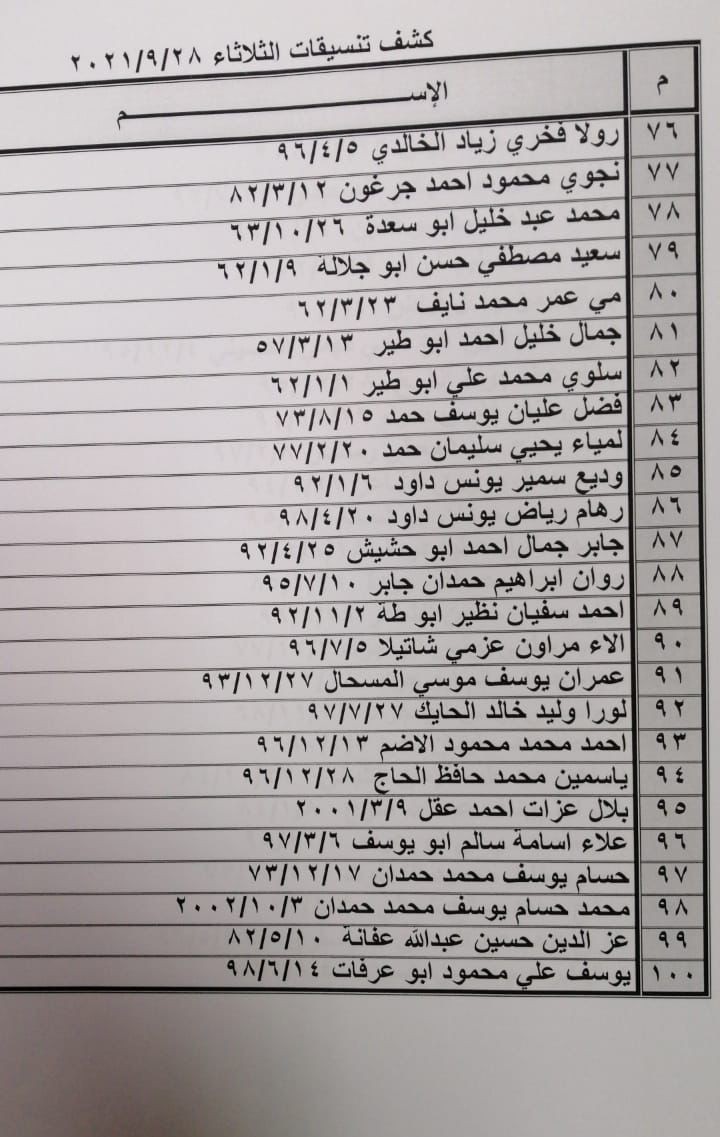 كشف تنسيقات الثلاثاء ٢٠٢١/٩/٢٨
م الإســـــــــــــم
٧٦ رولا فخري زياد الخالدي ٩٦/٤/٥
٧٧ نجوي محمود احمد جرغون ٨٢/٣/١٢
٧٨ محمد عبد خليل ابو سعدة ٦٣/١٠/٢٦
٧٩ سعيد مصطفي حسن ابو جلالة ٦٢/١/٩
٨٠ مي عمر محمد نايف ٦٢/٣/٢٣
٨١ جمال خليل احمد ابو طير ٥٧/٣/١٣
٨٢ سلوي محمد علي ابو طير ٦٢/١/١
٨٣ فضل عليان يوسف حمد ٧٣/٨/١٥
٨٤ لمياء يحيي سليمان حمد ٧٧/٢/٢٠
٨٥ وديع سمير يونس داود ٩٢/١/٦
٨٦ رهام رياض يونس داود ٩٨/٤/٢٠
٨٧ جابر جمال احمد ابو حشيش ٩٢/٤/٢٥
٨٨ روان ابراهيم حمدان جابر ٩٥/٧/١٠
٨٩ احمد سفيان نظير ابو طة ٩٢/١١/٢
٩٠ الاء مراون عزمي شاتيلا ٩٦/٧/٥
٩١ عمران يوسف موسي المسحال ٩٣/١٢/٢٧
٩٢ لورا وليد خالد الحايك ٩٧/٧/٢٧
٩٣ احمد محمد محمود الاضم ٩٦/١٢/١٣
٩٤ ياسمين محمد حافظ الحاج ٩٦/١٢/٢٨
٩٥ بلال عزات احمد عقل ٢٠٠١/٣/٩
٩٦ علاء اسامة سالم ابو يوسف ٩٧/٣/٦
٩٧ حسام يوسف محمد حمدان ٧٣/١٢/١٧
٩٨ محمد حسام يوسف محمد حمدان ٢٠٠٢/١٠/٣
٩٩ عز الدين حسين عبدالله عفانة ٨٢/٥/١٠
١٠٠ يوسف علي محمود ابو عرفات ٩٨/٦/١٤